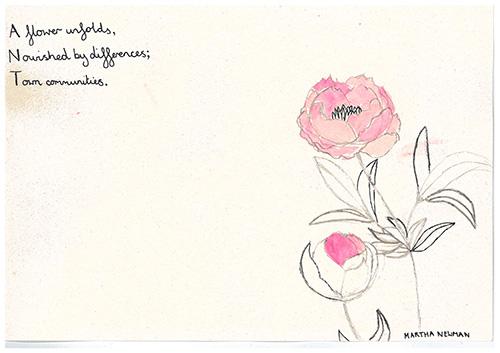 A flower unfolds,
Nourished by differences;
Town communities.
MARTHA NEWMAN